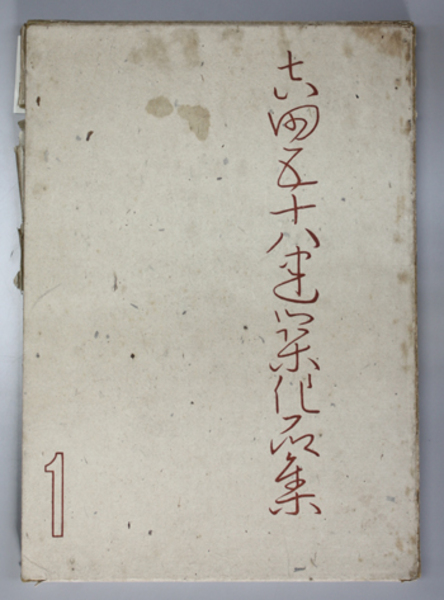 吉田五十八建築作品集
1